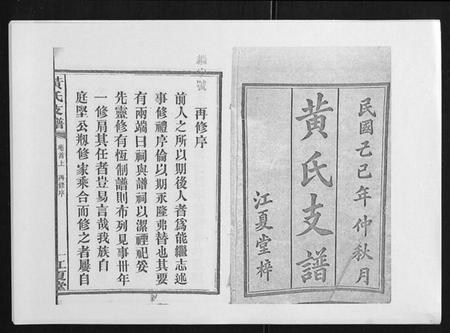 民國己巳年仲秋月
黃氏支譜
江夏堂梓
再修序
前人之所以期後人者爲能繼志述
事修禮序倫以期永隆弗替也其要
有兩端曰祠與譜祠以潔禋祀妥
先靈修有恆制譜則布列見事卅年
一修肩其任者豈易言哉我族自
庭堅公剏修家乘合而修之者屢自
黃氏支譜
卷首上
再修序
江夏堂